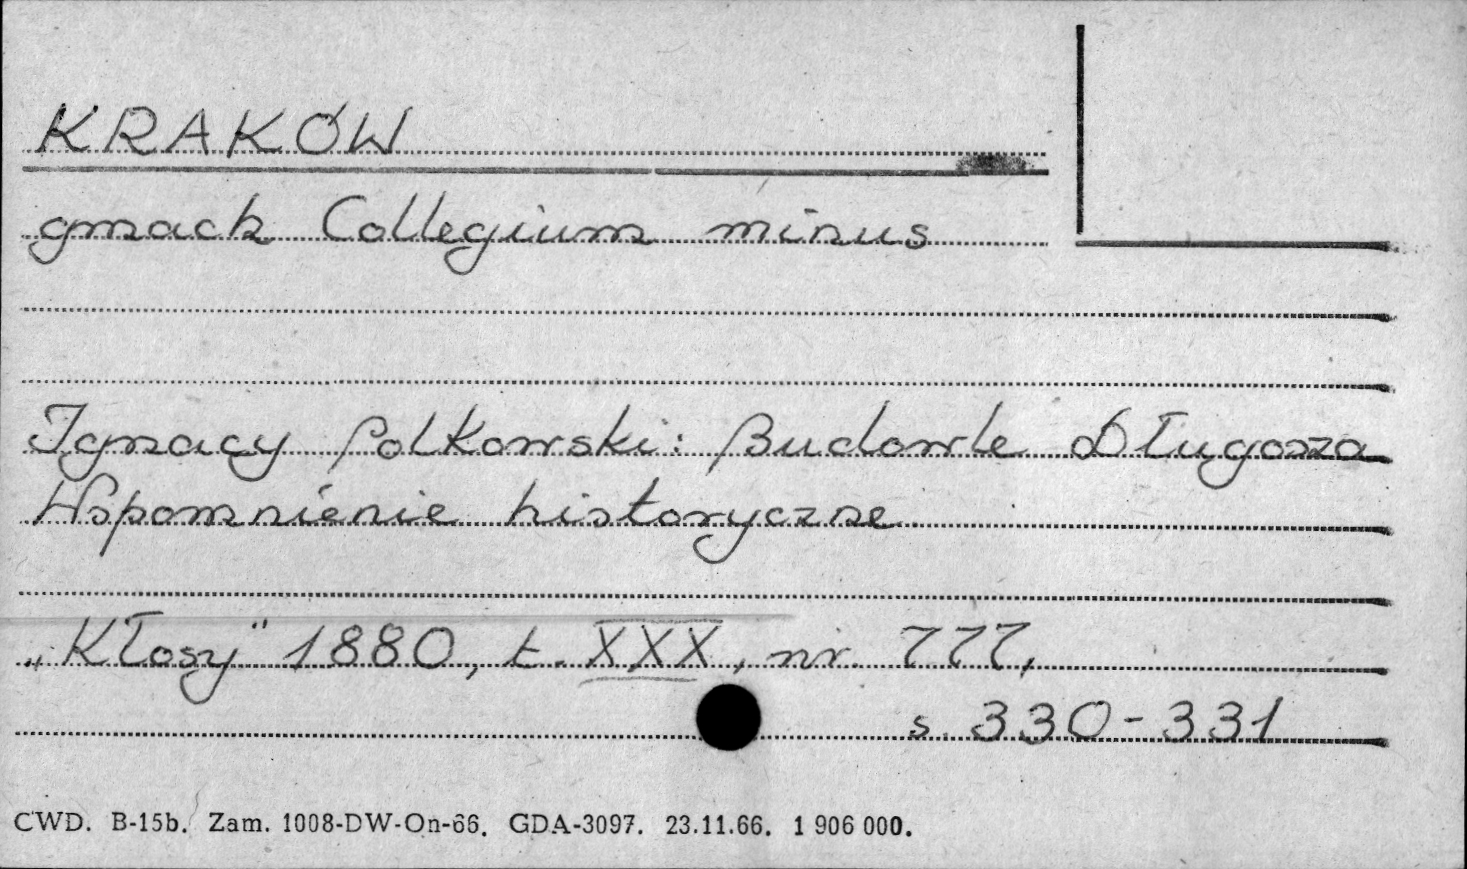 KRAKÓW
gmach Collegium minus
Ignacy Polkowski: Budowle Długosza
Wspomnienie historyczne
„Kłosy" 1880, t. XXX, nr. 777,
s. 330-331
CWD. B-15b. Zam. 1008-DW-On-66. GDA-3097. 23.11.66. 1 906 000.